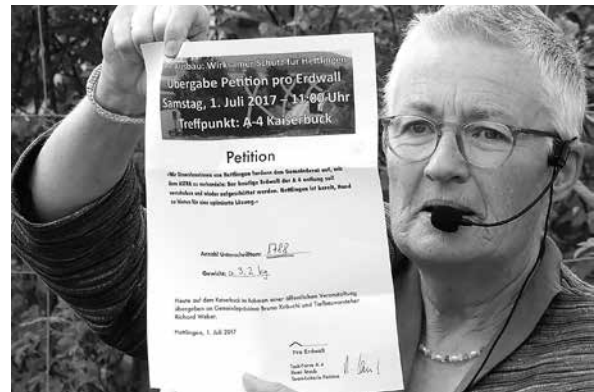 usbau: Wirksamer Schutz für Hettlingen
Übergabe Petition pro Erdwall
Samstag, 1. Juli 2017 – 11:00 Uhr
Treffpunkt: A-4 Kaiserbuck
Petition
«Wir EinwohnerInnen von Hettlingen fordern den Gemeinderat auf, mit
dem ASTRA zu verhandeln: Der heutige Erdwall der A 4 entlang soll
verschoben und wieder aufgeschüttet werden. Hettlingen ist bereit, Hand
zu bieten für eine optimierte Lösung.»
Anzahl Unterschriften:
Gewicht: ca. 3,2 kg
Heute auf dem Kaiserbuck in einer öffentlichen Veranstaltung
übergeben an Gemeindepräsident Bruno Kräuchi und Tiefbauvorsteher
Richard Weber.
Hettlingen, 1. Juli 2017
Pro Erdwall
Task Force A 4